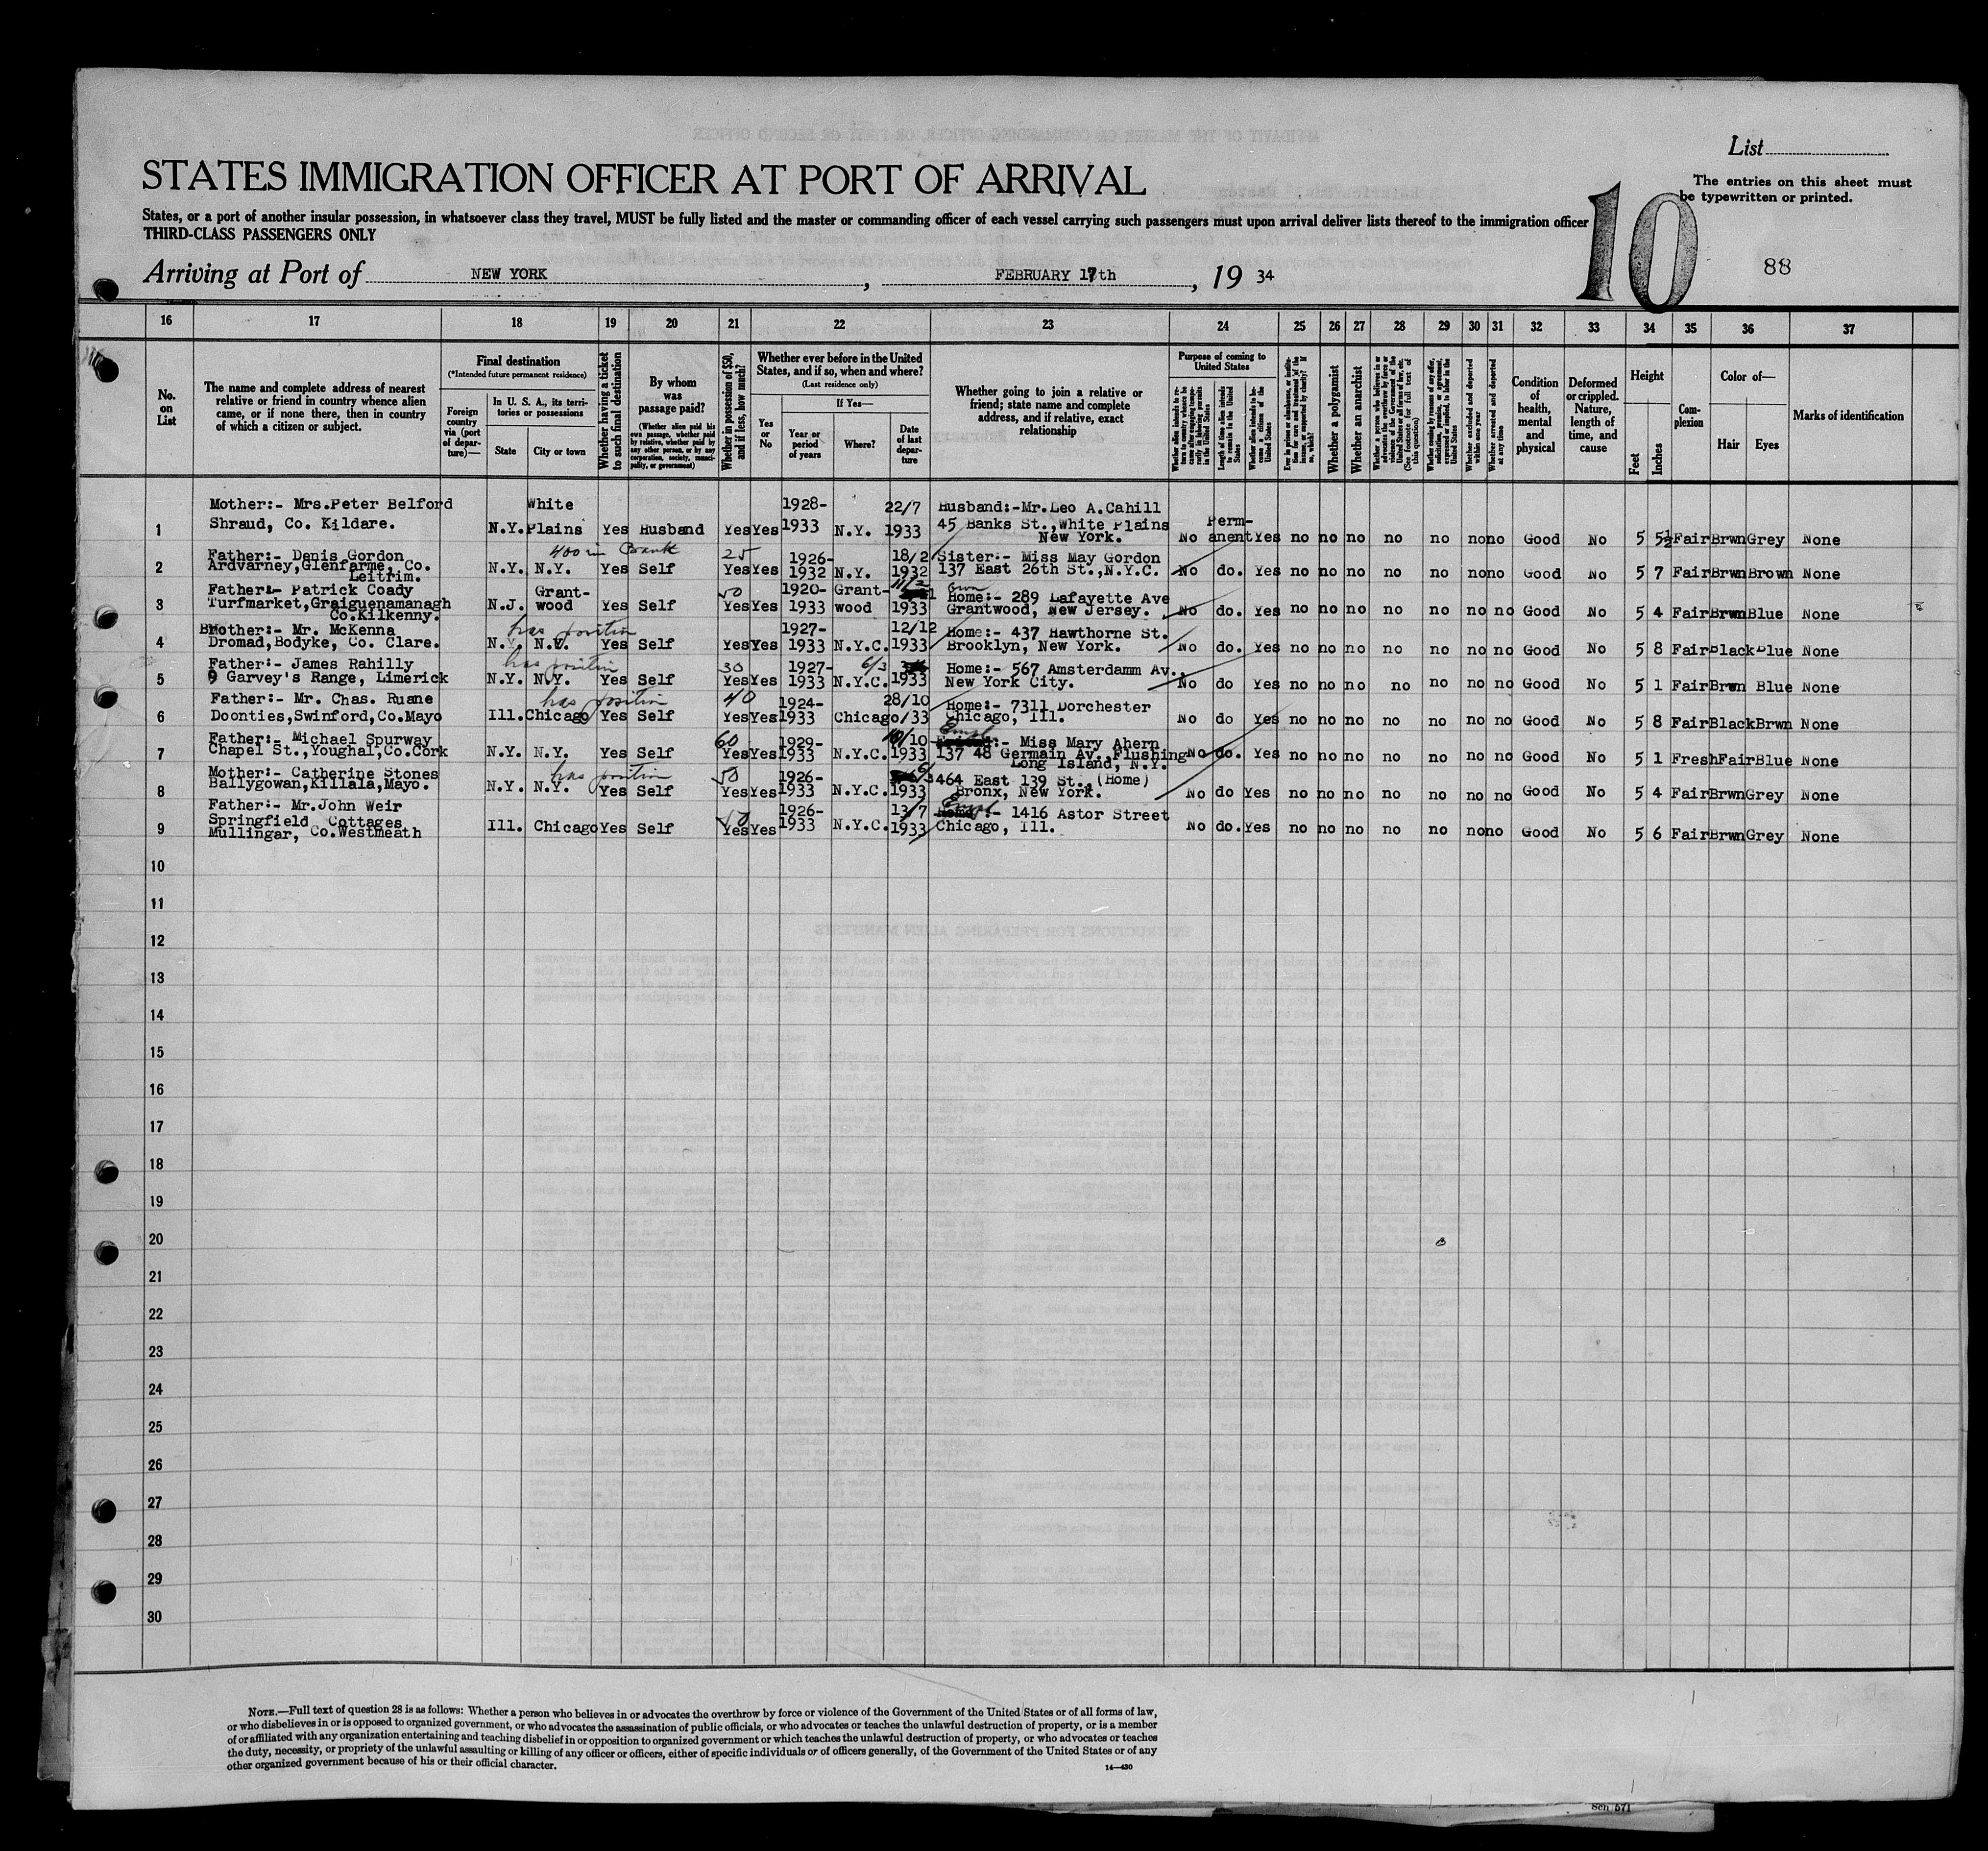 List
STATES IMMIGRATION OFFICER AT PORT OF ARRIVAL
The entries on this sheet must
be typewritten or printed.
10
States, or a port of another insular possession, in whatsoever class they travel, MUST be fully listed and the master or commanding officer of each vessel carrying such passengers must upon arrival deliver lists thereof to the immigration officer
THIRD-CLASS PASSENGERS ONLY
88
Arriving at Port of NEW YORK, FEBRUARY 17th, 19 34
16 17 18 19 20 21 22 23 24 25 26 27 28 29 30 31 32 33 34 35 36 37
No. on List
The name and complete address of nearest relative or friend in country whence alien came, or if none there, then in country of which a citizen or subject.
Final destination
(*Intended future permanent residence)
Foreign country via (port of departure)—
In U. S. A., its territories or possessions
State
City or town
Whether having a ticket to such final destination
By whom was passage paid?
(Whether alien paid his own passage, whether paid by relative, whether paid by any other person, or by any corporation, society, municipality, or government)
Whether in possession of $50, and if less, how much?
Whether ever before in the United States, and if so, when and where?
(Last residence only)
Yes or No
If Yes—
Year or period of years
Where?
Date of last departure
Whether going to join a relative or friend; state name and complete address, and if relative, exact relationship
Purpose of coming to United States
Length of time alien intends to remain in the United States
Whether alien intends to become a citizen of the United States
Whether a polygamist
Whether an anarchist
Whether excluded and deported within one year
Whether arrested and deported at any time
Condition of health, mental and physical
Deformed or crippled. Nature, length of time, and cause
Height
Feet
Inches
Complexion
Color of—
Hair
Eyes
Marks of identification
1 Mother:- Mrs.Peter Belford White 1928- 22/7 Husband:-Mr.Leo A.Cahill
Shraud, Co. Kildare. N.Y. Plains Yes Husband Yes Yes 1933 N.Y. 1933 45 Banks St.,White Plains Perm-
New York. No anent Yes no no no no no no no Good No 5 5½ Fair Brwn Grey None
400 in Bank 25
2 Father:- Denis Gordon 1926- 18/2 Sister:- Miss May Gordon
Ardvarney,Glenfarme, Co. N.Y. N.Y. Yes Self Yes Yes 1932 N.Y. 1932 137 East 26th St.,N.Y.C. No do. Yes no no no no no no no Good No 5 7 Fair Brwn Brown None
Leitrim.
3 Father:- Patrick Coady Grant- 50 1920- Grant- Home:- 289 Lafayette Ave
Turfmarket,Graiguenamanagh N.J. wood Yes Self Yes Yes 1933 wood 1933 Grantwood, New Jersey. No do. Yes no no no no no no no Good No 5 4 Fair Brwn Blue None
Co.Kilkenny.
has position
4 Brother:- Mr. McKenna 1927- 12/12 Home:- 437 Hawthorne St.
Dromad,Bodyke, Co. Clare. N.Y. N.Y. Yes Self Yes Yes 1933 N.Y.C. 1933 Brooklyn, New York. No do. Yes no no no no no no no Good No 5 8 Fair Black Blue None
has position 30
5 Father:- James Rahilly 1927- 6/3 Home:- 567 Amsterdamm Av.,
9 Garvey's Range, Limerick N.Y. N.Y. Yes Self Yes Yes 1933 N.Y.C. 1933 New York City. No do Yes no no no no no no no Good No 5 1 Fair Brwn Blue None
has position 40
6 Father:- Mr. Chas. Ruane 1924- 28/10 Home:- 7311 Dorchester
Doonties,Swinford,Co.Mayo Ill. Chicago Yes Self Yes Yes 1933 Chicago /33 Chicago, Ill. No do Yes no no no no no no no Good No 5 8 Fair Black Brwn None
60 Empl
7 Father:- Michael Spurway 1929- /10 :- Miss Mary Ahern
Chapel St.,Youghal,Co.Cork N.Y. N.Y. Yes Self Yes Yes 1933 N.Y.C. 1933 137 48 Germain Av.,Flushing No do. Yes no no no no no no no Good No 5 1 Fresh Fair Blue None
Long Island, N.Y.
has position 50
8 Mother:- Catherine Stones 1926- 464 East 139 St.,(Home)
Ballygowan,Killala,Mayo. N.Y. N.Y. Yes Self Yes Yes 1933 N.Y.C. 1933 Bronx, New York. No do Yes no no no no no no no Good No 5 4 Fair Brwn Grey None
Empl
9 Father:- Mr.John Weir 1926- 13/7 Home:- 1416 Astor Street
Springfield Cottages Ill. Chicago Yes Self Yes Yes 1933 N.Y.C. 1933 Chicago, Ill. No do. Yes no no no no no no no Good No 5 6 Fair Brwn Grey None
Mullingar, Co.Westmeath
10
11
12
13
14
15
16
17
18
19
20
21
22
23
24
25
26
27
28
29
30
NOTE.—Full text of question 28 is as follows: Whether a person who believes in or advocates the overthrow by force or violence of the Government of the United States or of all forms of law,
or who disbelieves in or is opposed to organized government, or who advocates the assassination of public officials, or who advocates or teaches the unlawful destruction of property, or is a member
of or affiliated with any organization entertaining and teaching disbelief in or opposition to organized government or which teaches the unlawful destruction of property, or who advocates or teaches
the duty, necessity, or propriety of the unlawful assaulting or killing of any officer or officers, either of specific individuals or of officers generally, of the Government of the United States or of any
other organized government because of his or their official character.
14—430
Sch 571